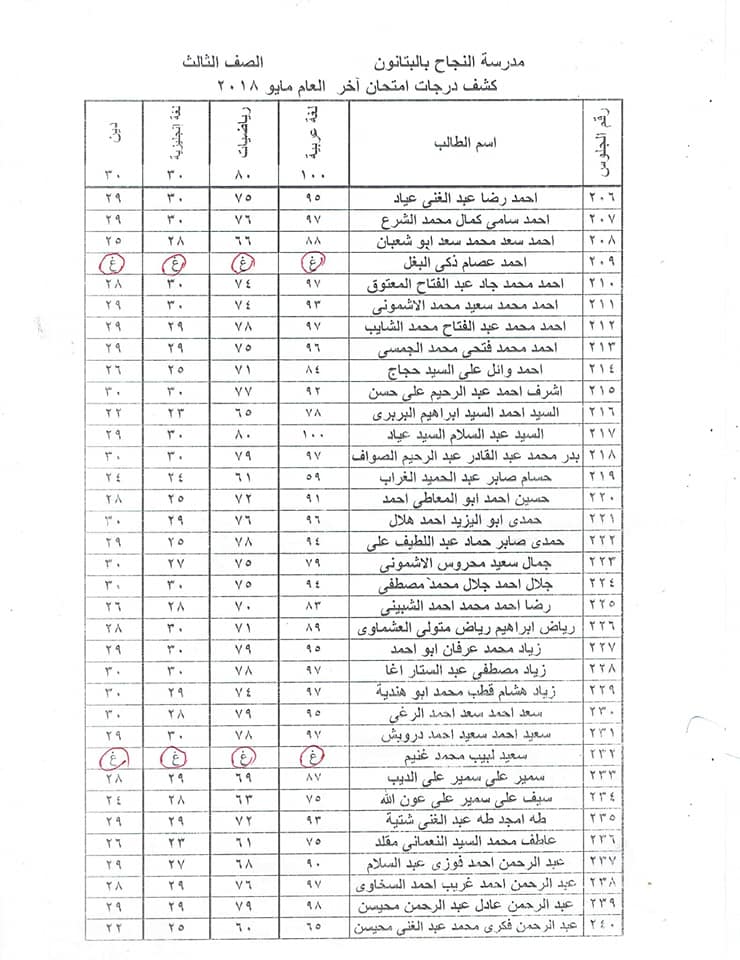 مدرسة النجاح بالبتانون الصف الثالث
كشف درجات امتحان آخر العام مايو ٢٠١٨
رقم الجلوس اسم الطالب لغة عربية رياضيات لغة إنجليزية دين
١٠٠ ٨٠ ٣٠ ٣٠
٢٠٦ احمد رضا عبد الغنى عياد ٩٥ ٧٥ ٣٠ ٢٩
٢٠٧ احمد سامى كمال محمد الشرع ٩٧ ٧٦ ٣٠ ٢٩
٢٠٨ احمد سعد محمد سعد ابو شعبان ٨٨ ٦٦ ٢٨ ٢٥
٢٠٩ احمد عصام ذكى البغل غ غ غ غ
٢١٠ احمد محمد جاد عبد الفتاح المعتوق ٩٧ ٧٤ ٣٠ ٢٨
٢١١ احمد محمد سعيد محمد الاشمونى ٩٣ ٧٤ ٣٠ ٢٩
٢١٢ احمد محمد عبد الفتاح محمد الشايب ٩٧ ٧٨ ٢٩ ٢٩
٢١٣ احمد محمد فتحى محمد الجمسى ٩٦ ٧٥ ٢٩ ٢٩
٢١٤ احمد وائل على السيد حجاج ٨٤ ٧١ ٢٥ ٢٦
٢١٥ اشرف احمد عبد الرحيم على حسن ٩٢ ٧٧ ٣٠ ٣٠
٢١٦ السيد احمد السيد ابراهيم البربرى ٧٨ ٦٥ ٢٣ ٢٢
٢١٧ السيد عبد السلام السيد عياد ١٠٠ ٨٠ ٣٠ ٢٩
٢١٨ بدر محمد عبد القادر عبد الرحيم الصواف ٩٧ ٧٩ ٣٠ ٣٠
٢١٩ حسام صابر عبد الحميد الغراب ٥٩ ٦١ ٢٤ ٢٤
٢٢٠ حسين احمد ابو المعاطى احمد ٩١ ٧٢ ٢٥ ٢٨
٢٢١ حمدى ابو اليزيد احمد هلال ٩٦ ٧٦ ٢٩ ٣٠
٢٢٢ حمدى صابر حماد عبد اللطيف على ٩٤ ٧٨ ٢٥ ٢٩
٢٢٣ جمال سعيد محروس الاشمونى ٧٩ ٧٥ ٢٧ ٣٠
٢٢٤ جلال احمد جلال محمد مصطفى ٩٤ ٧٥ ٣٠ ٣٠
٢٢٥ رضا احمد محمد احمد الشبينى ٨٣ ٧٠ ٢٨ ٢٦
٢٢٦ رياض ابراهيم رياض متولى العشماوى ٨٩ ٧١ ٣٠ ٢٨
٢٢٧ زياد محمد عرفان ابو احمد ٩٥ ٧٩ ٣٠ ٢٩
٢٢٨ زياد مصطفى عبد الستار اغا ٩٧ ٧٨ ٣٠ ٣٠
٢٢٩ زياد هشام قطب محمد ابو هندية ٩٧ ٧٤ ٢٩ ٣٠
٢٣٠ سعد احمد سعد احمد الرغى ٩٥ ٧٩ ٢٨ ٣٠
٢٣١ سعيد احمد سعيد احمد درويش ٩٧ ٧٨ ٣٠ ٢٩
٢٣٢ سعيد لبيب محمد غنيم غ غ غ غ
٢٣٣ سمير على سمير على الديب ٨٧ ٦٩ ٢٩ ٢٨
٢٣٤ سيف على سمير على عون الله ٧٥ ٦٣ ٢٨ ٢٤
٢٣٥ طه امجد طه عبد الغنى شتية ٩٣ ٧٢ ٢٩ ٢٩
٢٣٦ عاطف محمد السيد النعمانى مقلد ٧٥ ٦١ ٢٣ ٢٦
٢٣٧ عبد الرحمن احمد فوزى عبد السلام ٩٠ ٦٨ ٢٧ ٢٩
٢٣٨ عبد الرحمن احمد غريب احمد السخاوى ٩٧ ٧٦ ٢٩ ٢٨
٢٣٩ عبد الرحمن عادل عبد الرحمن محيسن ٩٨ ٧٩ ٢٩ ٢٩
٢٤٠ عبد الرحمن فكرى محمد عبد الغنى محيسن ٦٥ ٦٠ ٢٥ ٢٢